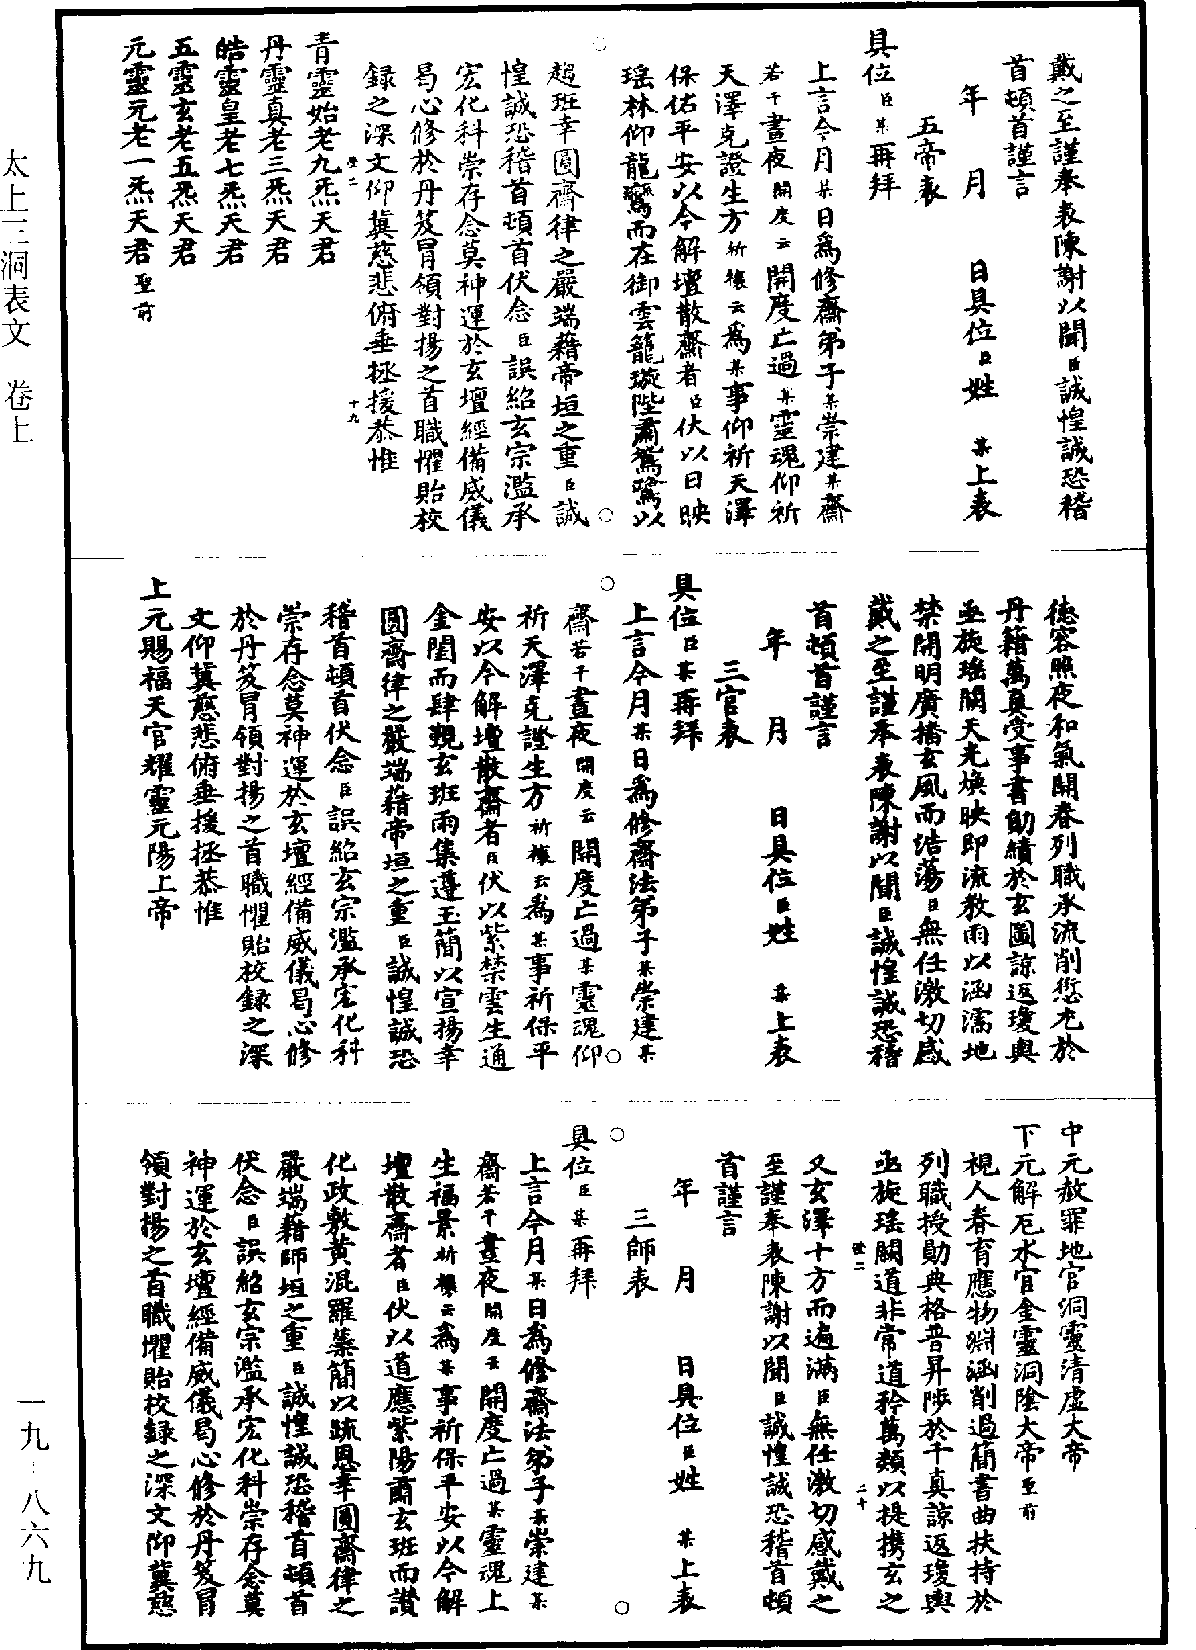 戴之至謹奉表陳謝以聞臣誠惶誠恐稽
首頓首謹言
年　月　日具位臣姓　某上表
五帝表
具位臣某再拜
上言今月某日爲修齋弟子某崇建某齋
若干晝夜開度云開度亡過某靈魂仰祈
天澤克證生方祈禳云爲某事仰祈天澤
保佑平安以今解壇散齋者臣伏以日映
瑤林仰龍鸞而在御雲籠璇陛肅鵷鷺以
趨班幸圓齋律之嚴端藉帝垣之重臣誠
惶誠恐稽首頓首伏念臣誤紹玄宗濫承
宏化科崇存念莫神運於玄壇經備威儀
曷心修於丹笈冒領對揚之首職懼貽校
錄之深文仰冀慈悲俯垂拯援恭惟
青靈始老九炁天君
丹靈真老三炁天君
皓靈皇老七炁天君
五靈玄老五炁天君
元靈元老一炁天君聖前
德容照夜和氣開春列職承流削愆尤於
丹籍萬真受事書勛績於玄圖諒返瓊輿
亟旋瑤闕天光煥映即流教雨以涵濡地
禁開明廣播玄風而浩蕩臣無任激切感
戴之至謹奉表陳謝以聞臣誠惶誠恐稽
首頓首謹言
年　月　日具位臣姓　某上表
三官表
具位臣某再拜
上言今月某日爲修齋法弟子某崇建某
齋若干晝夜開度云開度亡過某靈魂仰
祈天澤克證生方祈禳云爲某事祈保平
安以今解壇散齋者臣伏以紫禁雲生通
金閨而肆覲玄班雨集遵玉簡以宣揚幸
圓齋律之嚴端藉帝垣之重臣誠惶誠恐
稽首頓首伏念臣誤紹玄宗濫承宏化科
崇存念莫神運於玄壇經備威儀曷心修
於丹笈冒領對揚之首職懼貽校錄之深
文仰冀慈悲俯垂援拯恭惟
上元賜福天官耀靈元陽上帝
中元赦罪地官洞靈清虛大帝
下元解厄水官金靈洞陰大帝聖前
視人春育應物淵涵削過簡書曲扶持於
列職授勛典格普昇陟於千真諒返瓊輿
亟旋瑤闕道非常道矜萬類以提攜玄之
又玄澤十方而遍滿臣無任激切感戴之
至謹奉表陳謝以聞臣誠惶誠恐稽首頓
首謹言
年　月　日具位臣姓　某上表
三師表
具位臣某再拜
上言今月某日爲修齋法弟子某崇建某
齋若干晝夜開度云開度亡過某靈魂上
生福景祈禳云爲某事祈保平安以今解
壇散齋者臣伏以道應紫陽肅玄班而讚
化政敷黃混羅蘂簡以疏恩幸圓齋律之
嚴端藉師垣之重臣誠惶誠恐稽首頓首
伏念臣誤紹玄宗濫承宏化科崇存念莫
神運於玄壇經備威儀曷心修於丹笈冒
領對揚之首職懼貽校錄之深文仰冀慈
十九
二十
太上三洞表文　卷上
一九·八六九